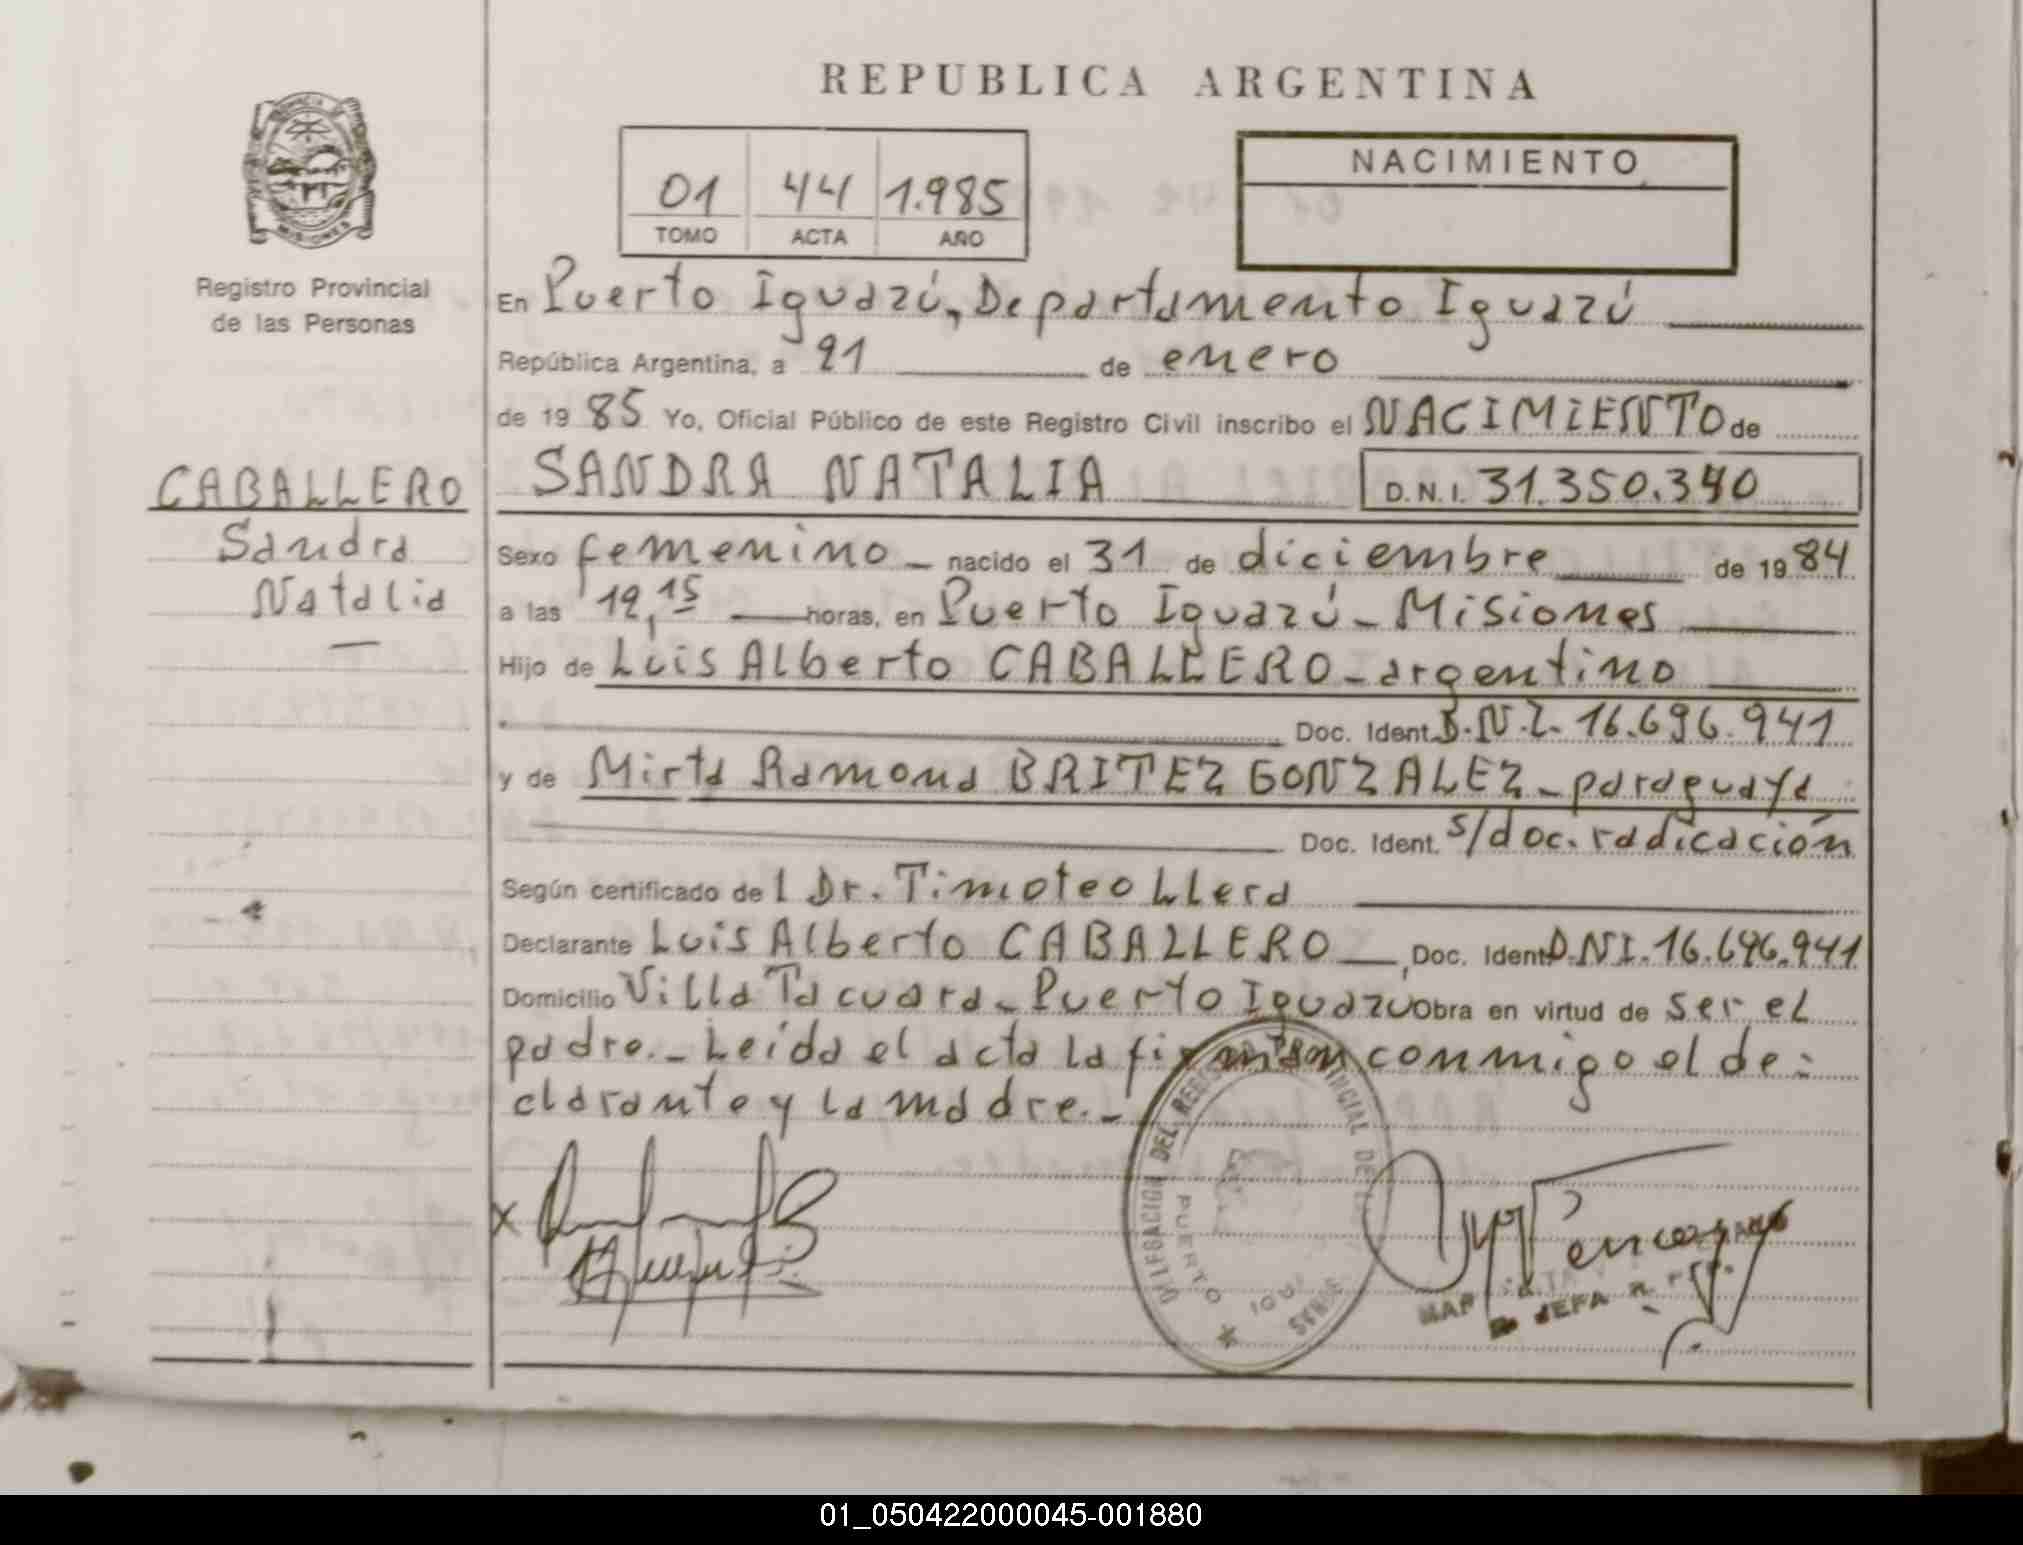 REPUBLICA ARGENTINA
01 44 1.985
TOMO ACTA AÑO
NACIMIENTO
Registro Provincial
de las Personas
En Puerto Iguazú, Departamento Iguazú
República Argentina, a 21 de enero
de 19 85 Yo, Oficial Público de este Registro Civil inscribo el NACIMIENTO de
CABALLERO
Sandra
Natalia
SANDRA NATALIA D.N.I. 31.350.340
Sexo femenino nacido el 31 de diciembre de 19 84
a las 12,15 horas, en Puerto Iguazú - Misiones
Hijo de Luis Alberto CABALLERO - argentino
Doc. Ident. D.N.I. 16.696.941
y de Mirta Ramona BRITEZ GONZALEZ - paraguaya
Doc. Ident. s/doc. radicación
Según certificado de l Dr. Timoteo Llera
Declarante Luis Alberto CABALLERO, Doc. Ident. D.N.I. 16.696.941
Domicilio Villa Tacuara - Puerto Iguazú Obra en virtud de ser el
padre. - Leída el acta la firman conmigo el de=
clarante y la madre. -
DELEGACION DEL REGISTRO PROVINCIAL DE
PUERTO
JEFA
01_050422000045-001880